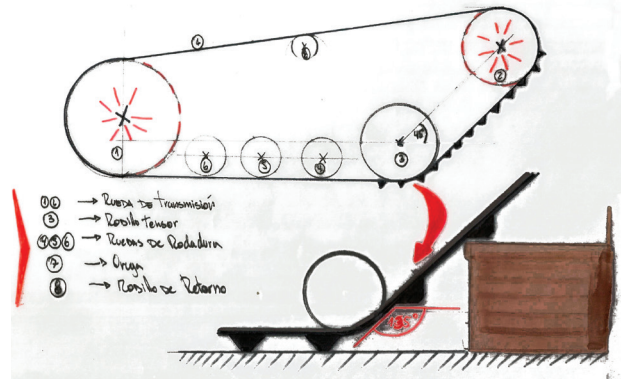 8
2
45
1
6
5
4
3
①② → Rueda de transmisión
③ → Rodillo tensor
④⑤⑥ → Ruedas de Rodadura
⑦ → Oruga
⑧ → Rodillo de Retorno